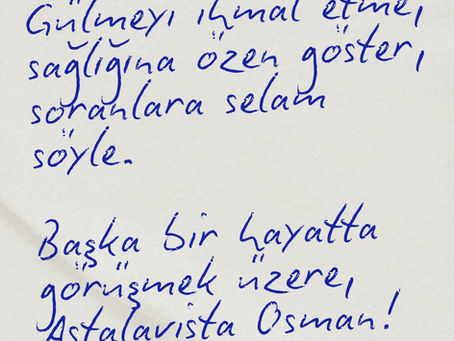 Gülmeyi ihmal etme,
sağlığına özen göster,
soranlara selam
söyle.
Başka bir hayatta
görüşmek üzere,
Astalavista Osman!